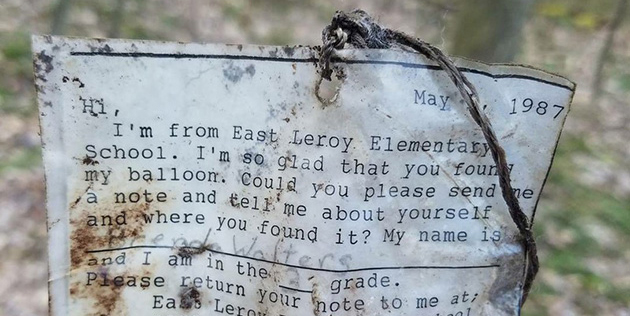 May , 1987
Hi,
I'm from East Leroy Elementary
School. I'm so glad that you found
my balloon. Could you please send me
a note and tell me about yourself
and where you found it? My name is
Walters
and I am in the ___ grade.
Please return your note to me at;
East Leroy